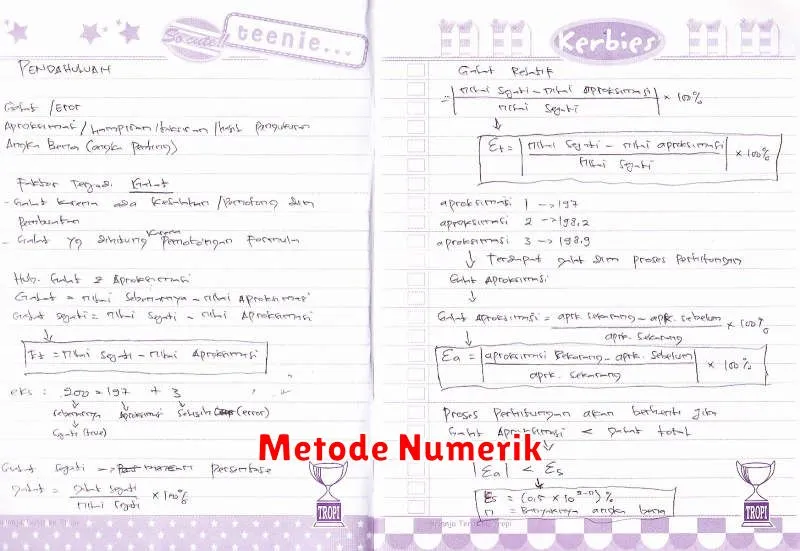 So cute!!
teenie...
PENDAHULUAN
Galat / Eror
Aproksimasi / Hampiran / taksiran / hasil Pengukuran
Angka Berna (angka Penting)
Faktor Terjadi Galat
- Galat karena ada kesalahan / Pemotong dlm
Pembulatan
- Galat yg dihitung karena Pemotongan Formula
Hub. Galat & Aproksimasi
Galat = nilai Sebenarnya - nilai Aproksimasi
Galat sejati = nilai Sejati - nilai Aproksimasi
↓
Et = nilai Sejati - nilai Aproksimasi
eks : 200 = 197 + 3
sebenarnya aproksimasi Selisih (error)
Sejati (true)
Galat Sejati → persentase
galat = galat sejati / nilai Sejati × 100%
TROPI
Kerbies
Galat Relatif
= | nilai Sejati - nilai Aproksimasi / nilai Sejati | × 100%
↓
Et = | nilai Sejati - nilai aproksimasi / nilai Sejati | × 100%
aproksimasi 1 → 197
aproksimasi 2 → 198,2
aproksimasi 3 → 198,9
↓ Terdapat galat dlm proses perhitungan
Galat Aproksimasi
↓
Galat Aproksimasi = aprk. sekarang - aprk. sebelum / aprk. sekarang × 100%
Ea = | aproksimasi Sekarang - aprk. Sebelum / aprk. Sekarang | × 100%
Proses Perhitungan akan berhenti jika
Galat Aproksimasi < galat total
↓
|Ea| < Es
↓
Es = (0,5 × 10^2-n) %
n = Banyaknya angka berna
TROPI
Metode Numerik